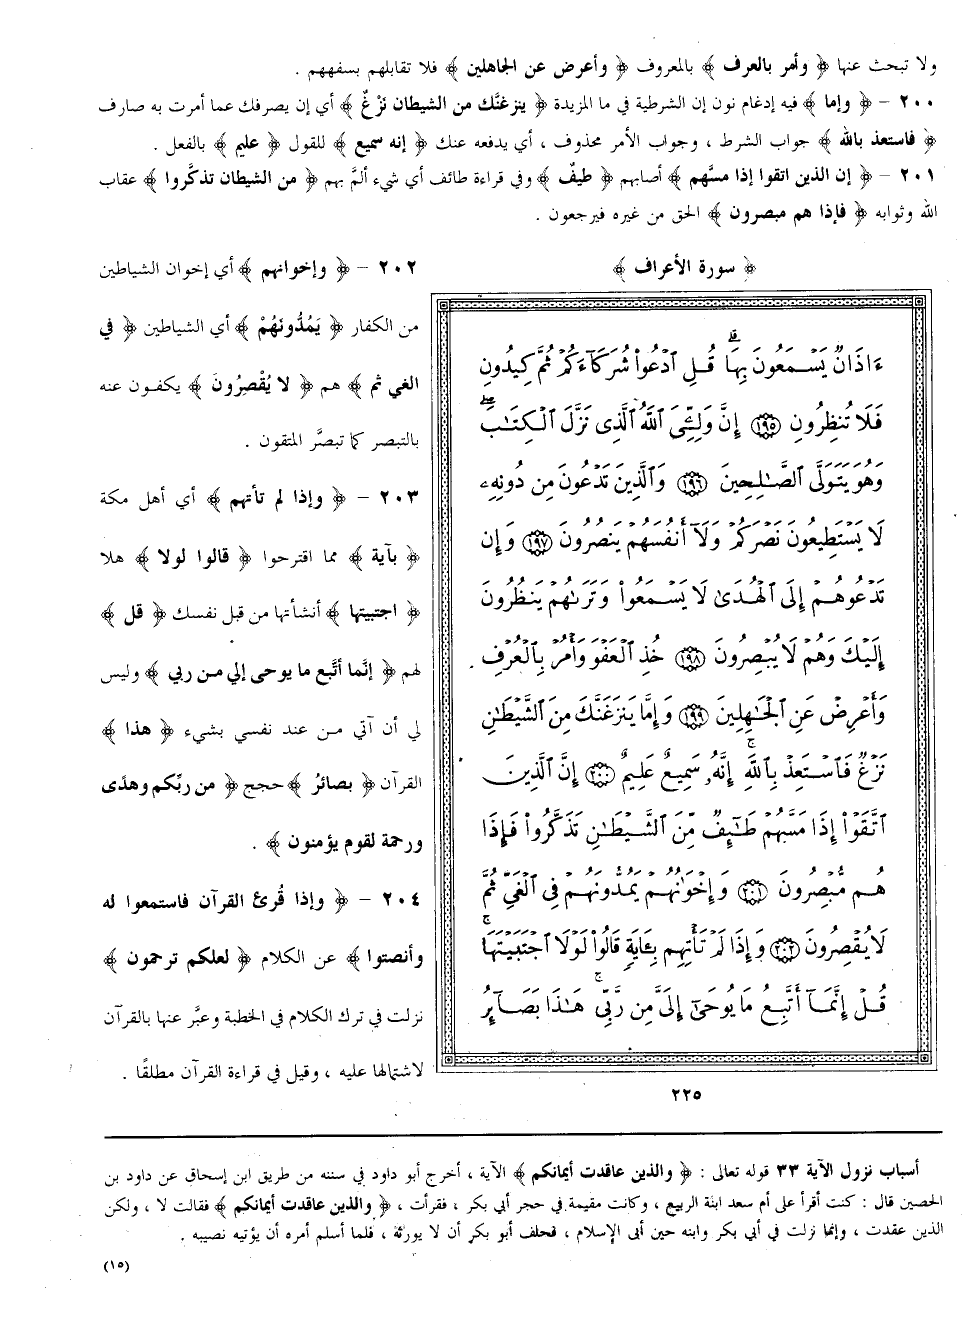 ولا تبحث عنها ﴿ وأمر بالعرف ﴾ بالمعروف ﴿ وأعرض عن الجاهلين ﴾ فلا تقابلهم بسفههم .
٢٠٠ – ﴿ وإما ﴾ فيه إدغام نون إن الشرطية في ما المزيدة ﴿ ينزغنَّك من الشيطان نزْغٌ ﴾ أي إن يصرفك عما أمرت به صارف
﴿ فاستعذ بالله ﴾ جواب الشرط ، وجواب الأمر محذوف ، أي يدفعه عنك ﴿ إنه سميع ﴾ للقول ﴿ عليم ﴾ بالفعل .
٢٠١ – ﴿ إن الذين اتقوا إذا مسَّهم ﴾ أصابهم ﴿ طيفٌ ﴾ وفي قراءة طائف أي شيء ألمَّ بهم ﴿ من الشيطان تذكَّروا ﴾ عقاب
الله وثوابه ﴿ فإذا هم مبصرون ﴾ الحق من غيره فيرجعون .
﴿ سورة الأعراف ﴾
ءَاذَانٌ يَسْمَعُونَ بِهَا ۗ قُلِ ٱدْعُوا۟ شُرَكَآءَكُمْ ثُمَّ كِيدُونِ
فَلَا تُنظِرُونِ ﴿١٩٥﴾ إِنَّ وَلِـِّۧىَ ٱللَّهُ ٱلَّذِى نَزَّلَ ٱلْكِتَٰبَ ۖ
وَهُوَ يَتَوَلَّى ٱلصَّٰلِحِينَ ﴿١٩٦﴾ وَٱلَّذِينَ تَدْعُونَ مِن دُونِهِۦ
لَا يَسْتَطِيعُونَ نَصْرَكُمْ وَلَآ أَنفُسَهُمْ يَنصُرُونَ ﴿١٩٧﴾ وَإِن
تَدْعُوهُمْ إِلَى ٱلْهُدَىٰ لَا يَسْمَعُوا۟ وَتَرَىٰهُمْ يَنظُرُونَ
إِلَيْكَ وَهُمْ لَا يُبْصِرُونَ ﴿١٩٨﴾ خُذِ ٱلْعَفْوَ وَأْمُرْ بِٱلْعُرْفِ
وَأَعْرِضْ عَنِ ٱلْجَٰهِلِينَ ﴿١٩٩﴾ وَإِمَّا يَنزَغَنَّكَ مِنَ ٱلشَّيْطَٰنِ
نَزْغٌ فَٱسْتَعِذْ بِٱللَّهِ ۚ إِنَّهُۥ سَمِيعٌ عَلِيمٌ ﴿٢٠٠﴾ إِنَّ ٱلَّذِينَ
ٱتَّقَوْا۟ إِذَا مَسَّهُمْ طَٰٓئِفٌ مِّنَ ٱلشَّيْطَٰنِ تَذَكَّرُوا۟ فَإِذَا
هُم مُّبْصِرُونَ ﴿٢٠١﴾ وَإِخْوَٰنُهُمْ يَمُدُّونَهُمْ فِى ٱلْغَىِّ ثُمَّ
لَا يُقْصِرُونَ ﴿٢٠٢﴾ وَإِذَا لَمْ تَأْتِهِم بِـَٔايَةٍ قَالُوا۟ لَوْلَا ٱجْتَبَيْتَهَا ۚ
قُلْ إِنَّمَآ أَتَّبِعُ مَا يُوحَىٰٓ إِلَىَّ مِن رَّبِّى ۚ هَٰذَا بَصَآئِرُ
٢٢٥
٢٠٢ – ﴿ وإخوانهم ﴾ أي إخوان الشياطين
من الكفار ﴿ يَمُدُّونَهُمْ ﴾ أي الشياطين ﴿ في
الغي ثم ﴾ هم ﴿ لا يُقْصِرُونَ ﴾ يكفون عنه
بالتبصر كما تبصَّر المتقون .
٢٠٣ – ﴿ وإذا لم تأتهم ﴾ أي أهل مكة
﴿ بآية ﴾ مما اقترحوا ﴿ قالوا لولا ﴾ هلا
﴿ اجتبيتها ﴾ أنشأتها من قبل نفسك ﴿ قل ﴾
لهم ﴿ إنَّما أتَّبع ما يوحى إلي من ربي ﴾ وليس
لي أن آتي من عند نفسي بشيء ﴿ هذا ﴾
القرآن ﴿ بصائرُ ﴾ حجج ﴿ من ربِّكم وهدًى
ورحمة لقوم يؤمنون ﴾ .
٢٠٤ – ﴿ وإذا قُرئ القرآن فاستمعوا له
وأنصتوا ﴾ عن الكلام ﴿ لعلكم ترحمون ﴾
نزلت في ترك الكلام في الخطبة وعبَّر عنها بالقرآن
لاشتمالها عليه ، وقيل في قراءة القرآن مطلقًا .
أسباب نزول الآية ٣٣ قوله تعالى : ﴿ والذين عاقدت أيمانكم ﴾ الآية ، أخرج أبو داود في سننه من طريق ابن إسحاق عن داود بن
الحصين قال : كنت أقرأ على أم سعد ابنة الربيع ، وكانت مقيمة في حجر أبي بكر ، فقرأت ، ﴿ والذين عاقدت أيمانكم ﴾ فقالت لا ، ولكن
الذين عقدت ، وإنما نزلت في أبي بكر وابنه حين أبى الإسلام ، فحلف أبو بكر أن لا يورثه ، فلما أسلم أمره أن يؤتيه نصيبه .
(١٥)